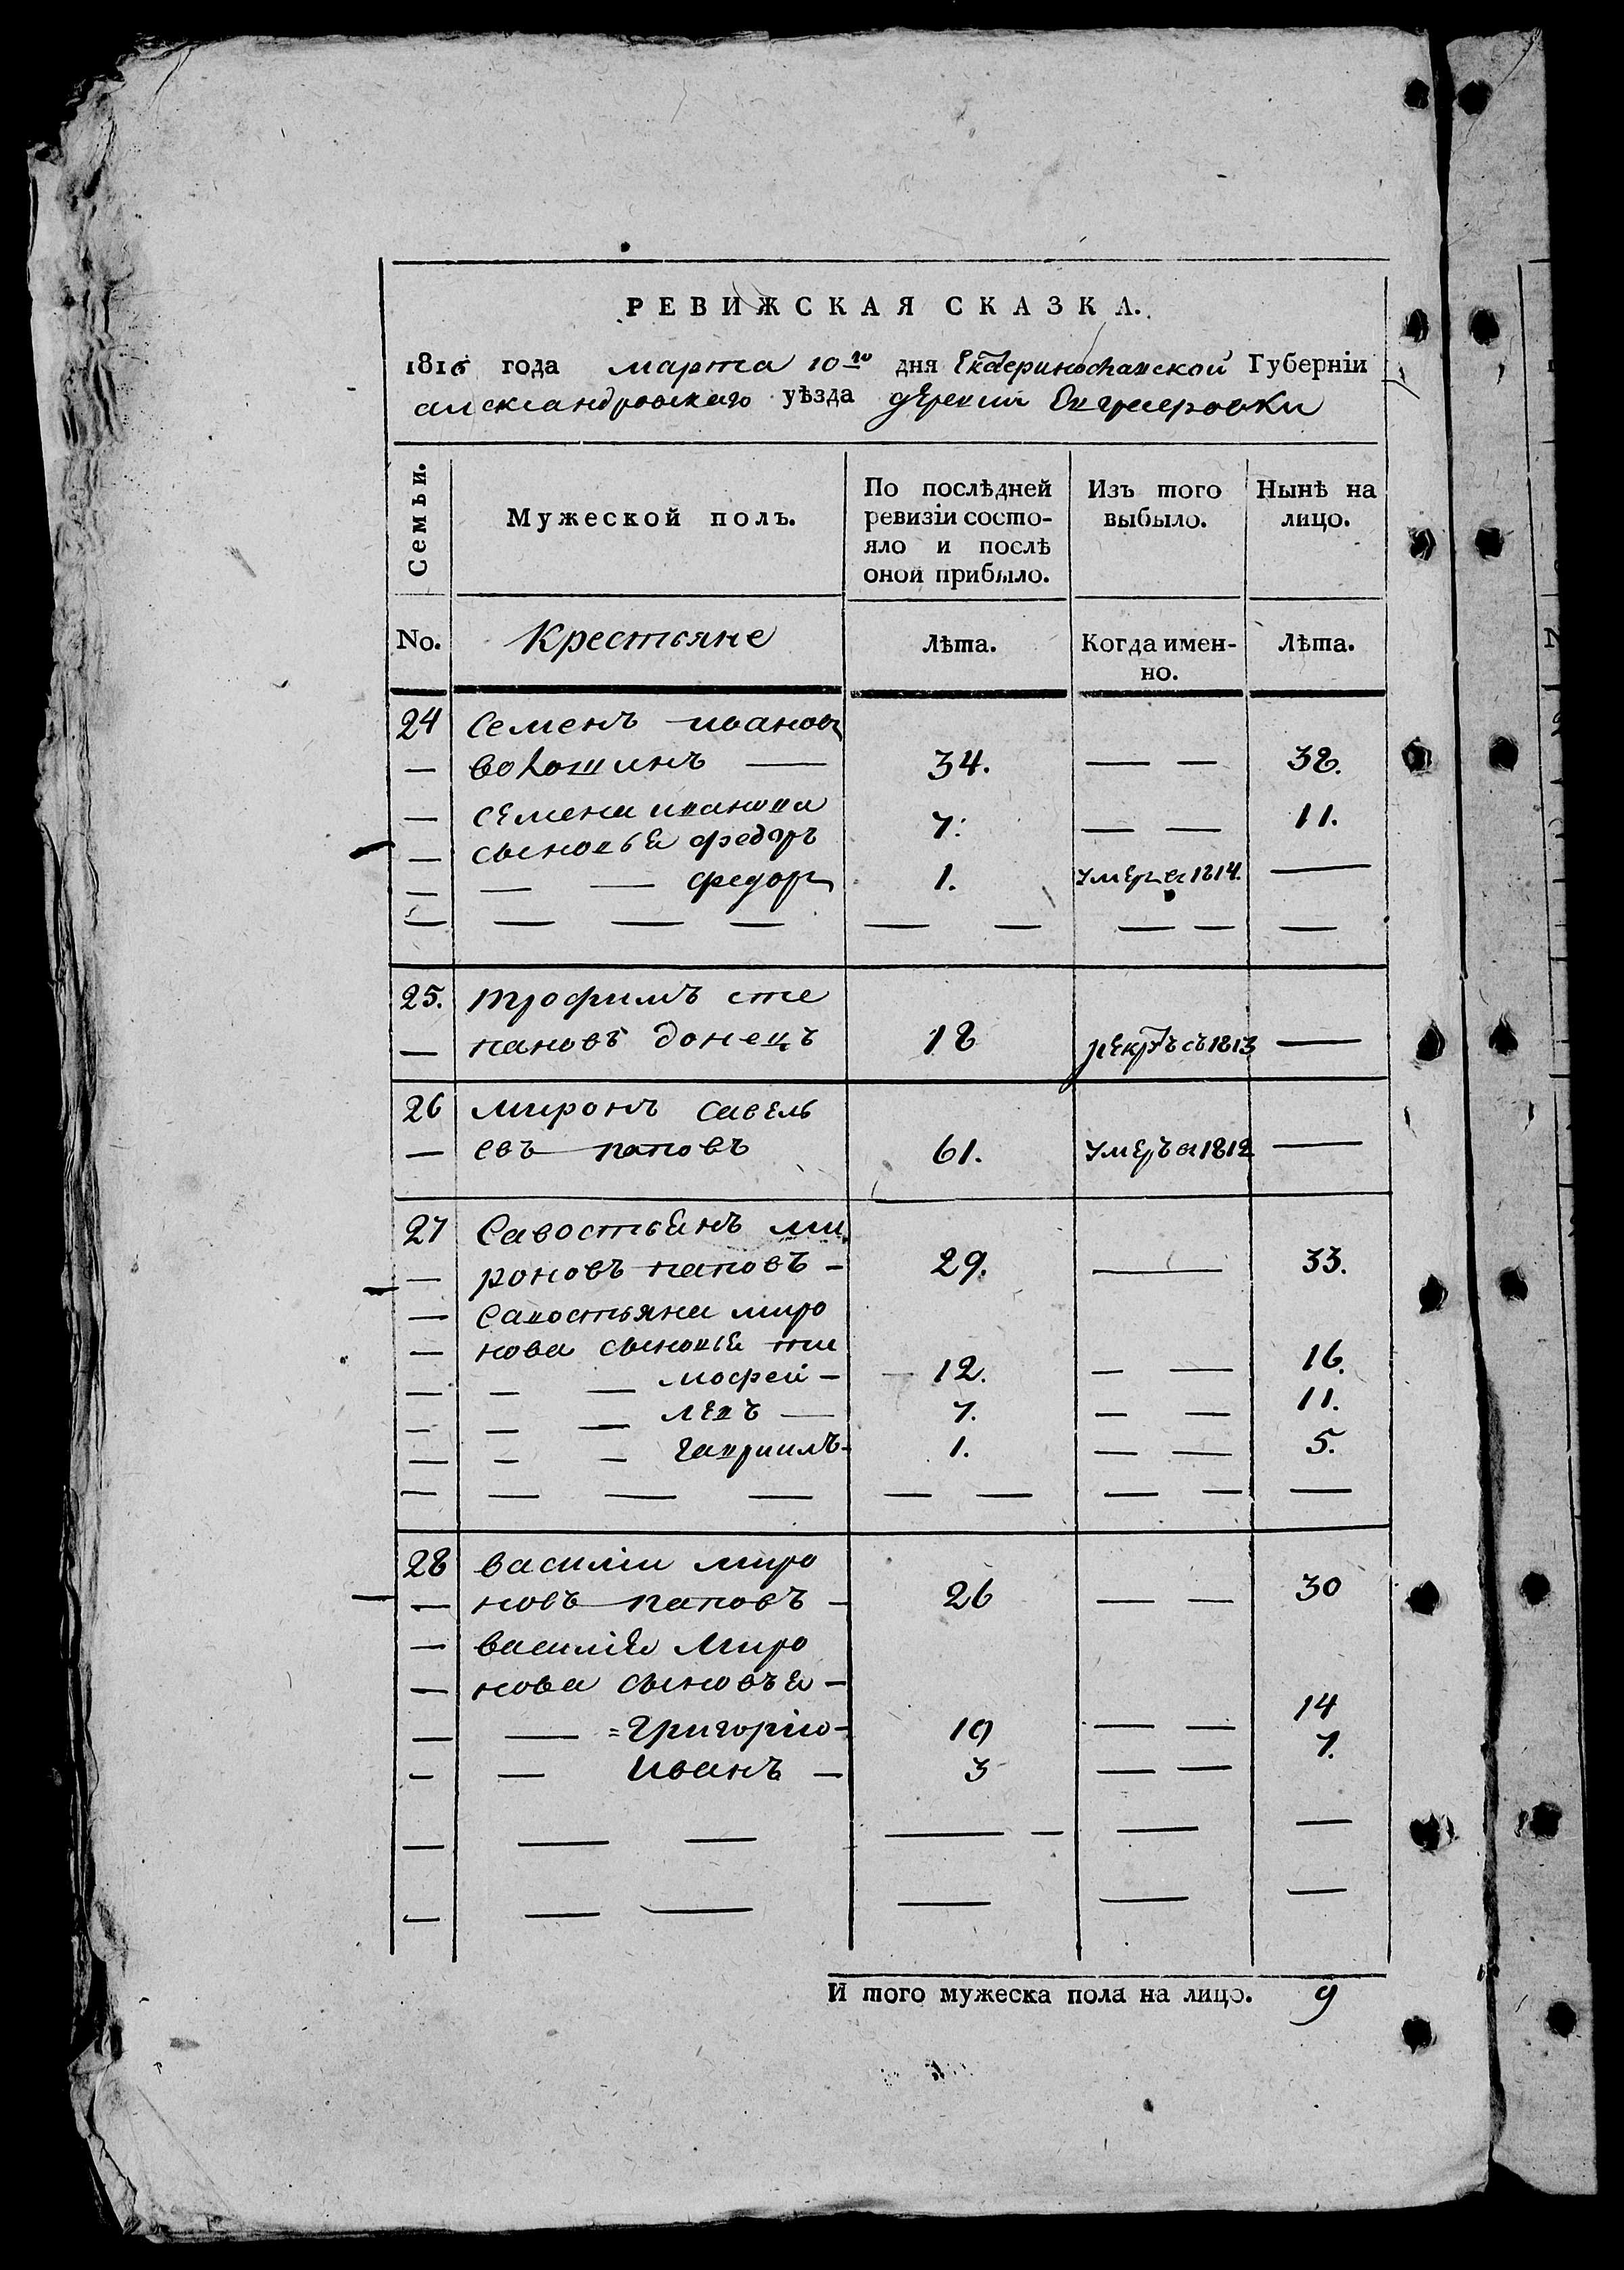 РЕВИЖСКАЯ СКАЗКА.
1816 года марта 10го дня Екатеринославской Губерніи
александровского уѣзда деревни
Семьи. Мужеской полъ. По послѣдней ревизіи состояло и послѣ оной прибыло. Изъ того выбыло. Нынѣ на лицо.
No. Крестьяне Лѣта. Когда именно. Лѣта.
24 Семенъ ивановъ
— волошинъ — 34. — — 38.
— семена иванова
— сыновья федоръ 7. — — 11.
— — — федоръ 1. умеръ в 1814. —
— — — — — — — — —
25. трофимъ сте
— пановъ донецъ 18 рекрутъ съ 1813 —
26 миронъ савель
— евъ паповъ 61. умеръ в 1812 —
27 Савостьянъ ми
— роновъ паповъ — 29. — 33.
— Савостьяна миро
— нова сыновья ти
— — — мофей — 12. — — 16.
— — — левъ — 7. — — 11.
— — — гавриилъ — 1. — — 5.
— — — — — — — — —
28 василіи миро
— новъ паповъ — 26 — — 30
— василія миро
— нова сыновья —
— — григорію — 10 — — 14
— — иванъ — 3 — — 7.
— — — — — — —
— — — — — —
И того мужеска пола на лицо. 9